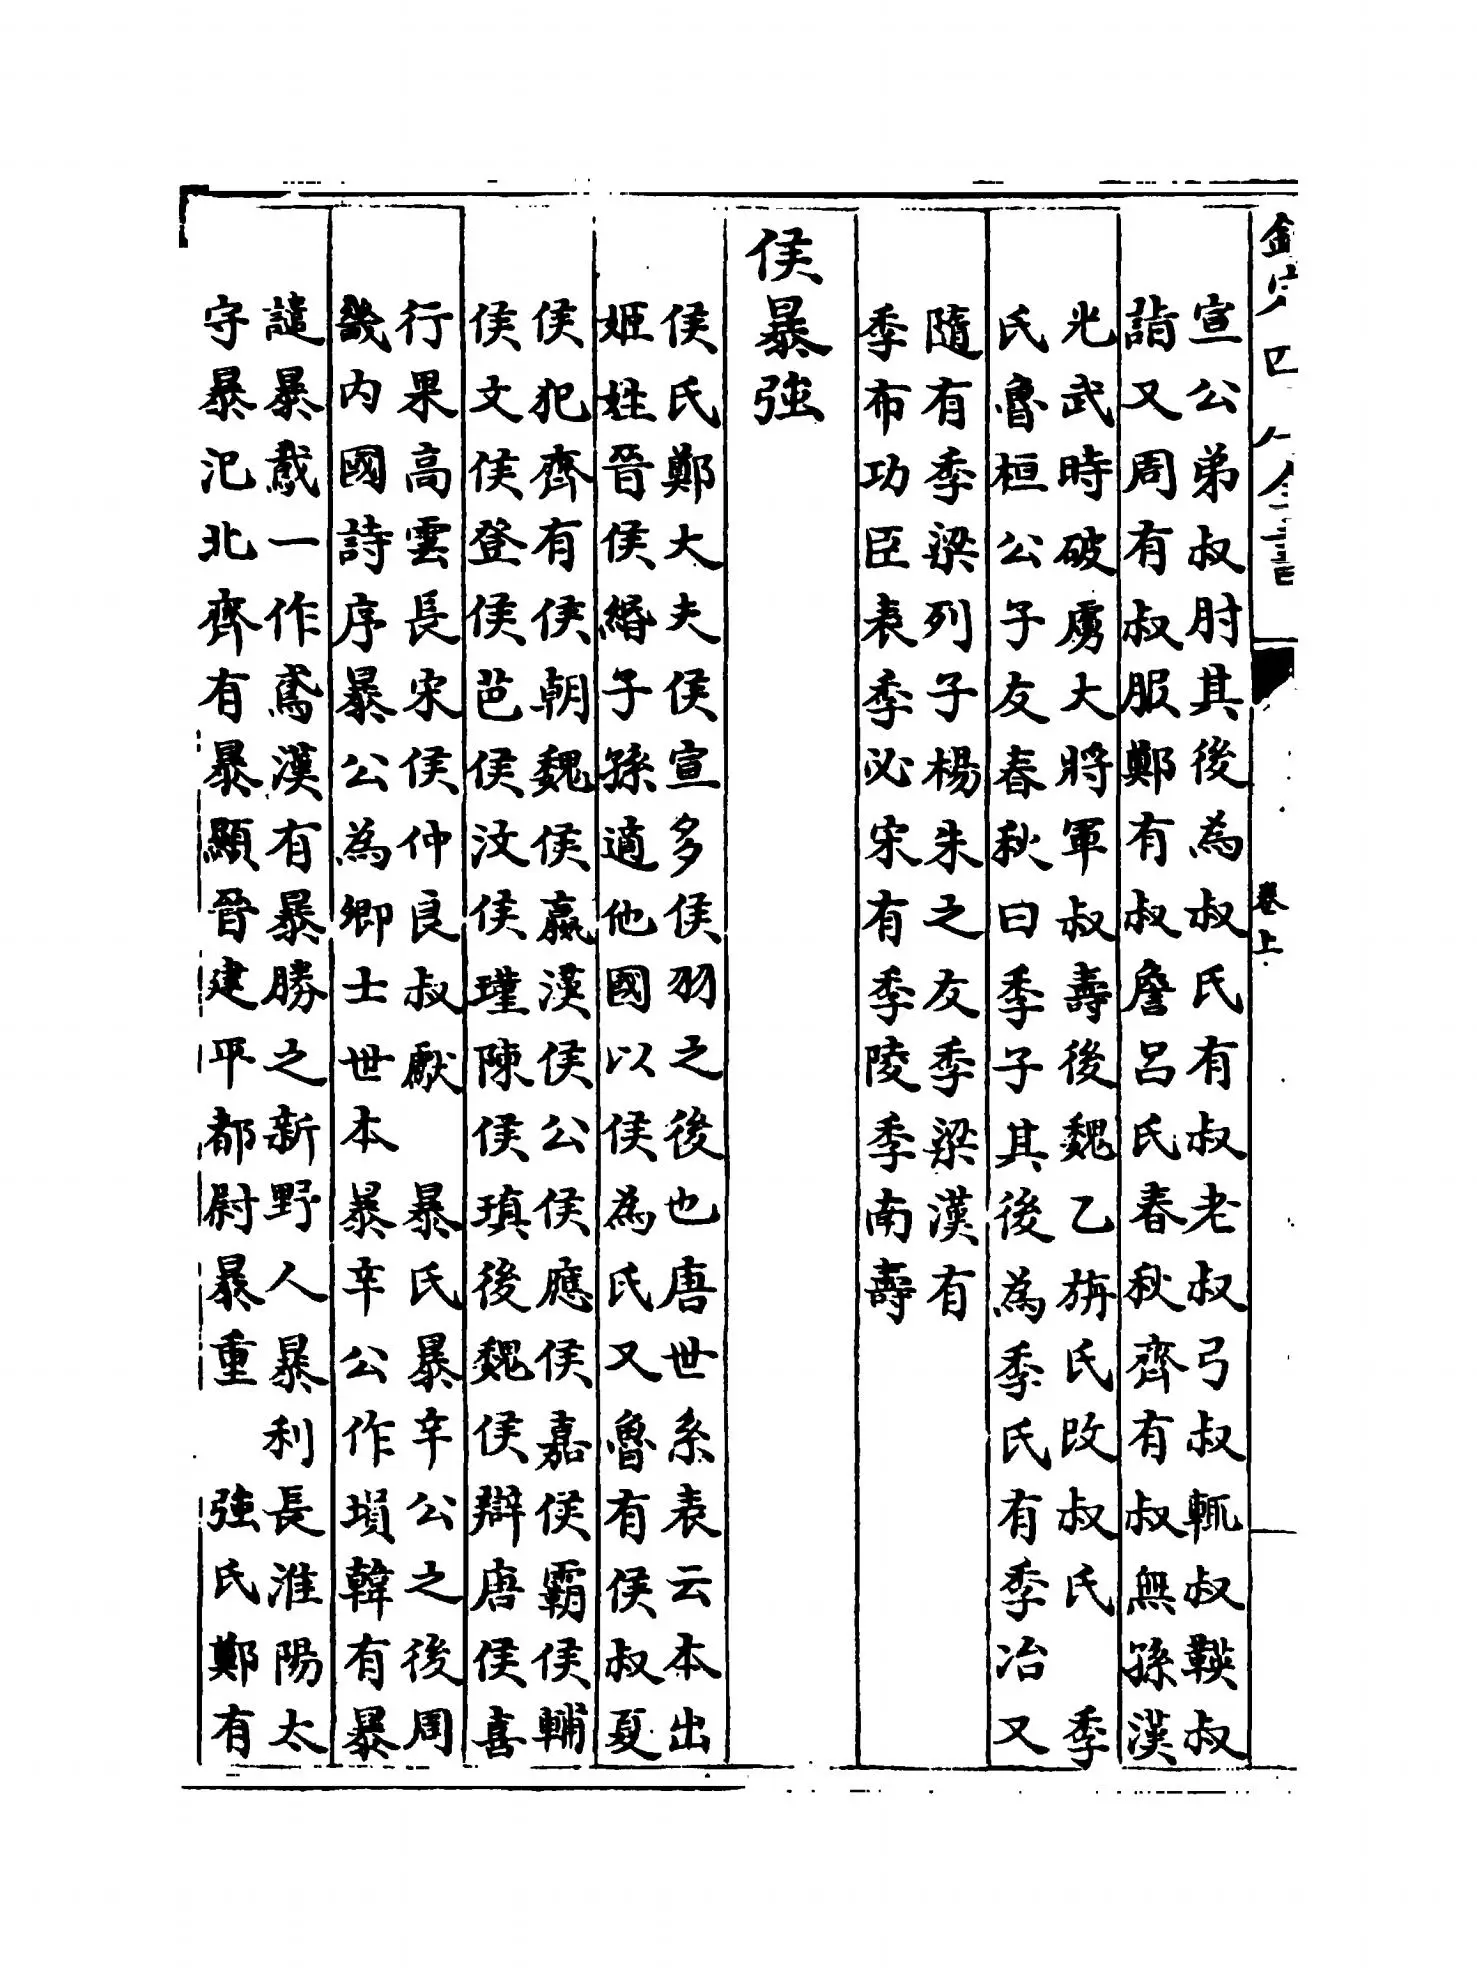 欽定四庫全書
卷上
宣公弟叔肸其後為叔氏有叔老叔弓叔輒叔鞅叔
詣又周有叔服鄭有叔詹呂氏春秋齊有叔無孫漢
光武時破虜大將軍叔壽後魏乙旃氏改叔氏　季
氏魯桓公子友春秋曰季子其後為季氏有季冶又
隨有季梁列子楊朱之友季梁漢有
季布功臣表季必宋有季陵季南壽
侯暴強
侯氏鄭大夫侯宣多侯羽之後也唐世系表云本出
姬姓晉侯緡子孫適他國以侯為氏又魯有侯叔夏
侯犯齊有侯朝魏侯嬴漢侯公侯應侯嘉侯霸侯輔
侯文侯登侯芭侯汶侯瑾陳侯瑱後魏侯辯唐侯喜
行果高雲長宋侯仲良叔獻　暴氏暴辛公之後周
畿內國詩序暴公為卿士世本暴辛公作塤韓有暴
譴暴䳒一作鳶漢有暴勝之新野人暴利長淮陽太
守暴汜北齊有暴顯晉建平都尉暴重　強氏鄭有